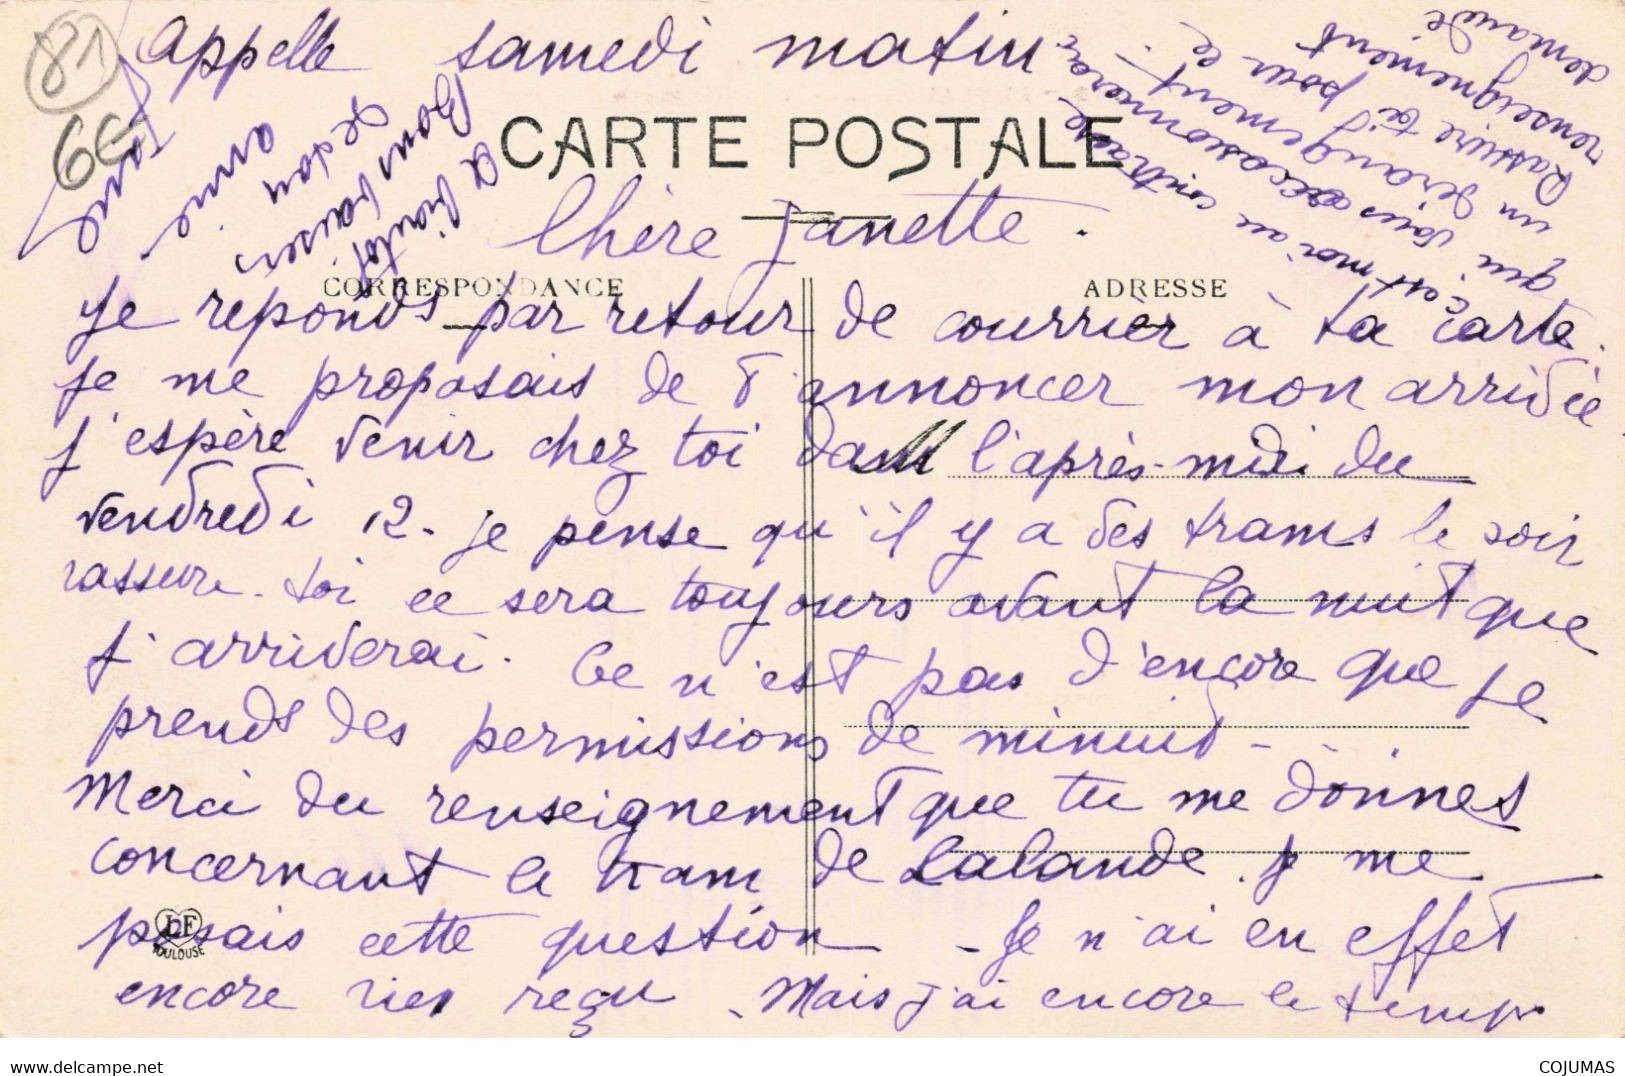 81
6€
Appelle samedi matin
CARTE POSTALE
Chère Janette.
CORRESPONDANCE
ADRESSE
Je reponds par retour de courrier à ta carte.
Je me proposais de t'annoncer mon arrivée
J'espère venir chez toi dans l'après-midi du
vendredi 12 - je pense qu'il y a des trams le soir
rassure-toi ce sera toujours avant la nuit que
j'arriverai. Ce n'est pas d'encore que je
prends des permissions de minuit -
Merci du renseignement que tu me donnes
concernant le tram de Lalande. je me
posais cette question - Je n'ai en effet
encore rien reçu. Mais j'ai encore le temps
LF
TOULOUSE
c'est moi au contraire
qui vais occasionner
un dérangement
Rassure toi pour le
renseignement
demandé
A bientôt
Bons baisers
de ton
amie
COJUMAS
www.delcampe.net